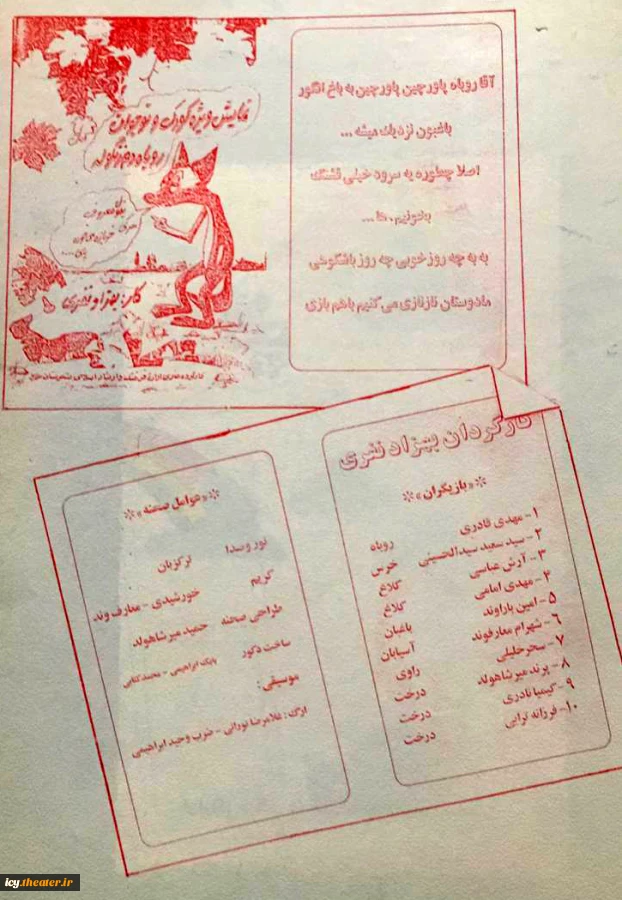 نمایش ویژه کودک و نوجوان
روباه و
کار: بهزاد نفری
آقا روباه پاورچین پاورچین به باغ انگور
باغبون نزدیک میشه ...
اصلا چطوره یه سرود خیلی قشنگ
بخونیم. ها ...
به به چه روز خوبی چه روز باشکوهی
مادوستان نازنازی می کنیم باهم بازی
کارگردان بهزاد نفری
*«بازیگران»*
۱- مهدی قادری روباه
۲- سید سعید سیدالحسینی خرس
۳- آرش عباسی کلاغ
۴- مهدی امامی کلاغ
۵- امین یاراوند باغبان
۶- شهرام معارفوند آسیابان
۷- سحر خلیلی راوی
۸- پرند میرشاهولد درخت
۹- کیمیا نادری درخت
۱۰- فرزانه ترابی درخت
*«عوامل صحنه»*
نور و صدا ترکزبان
گریم خورشیدی - معارف وند
طراحی صحنه حمید میرشاهولد
ساخت دکور بابک ابراهیمی - محمد کتابی
موسیقی:
ارگ: غلامرضا نورانی - ضرب وحید ابراهیمی
icy.theater.ir